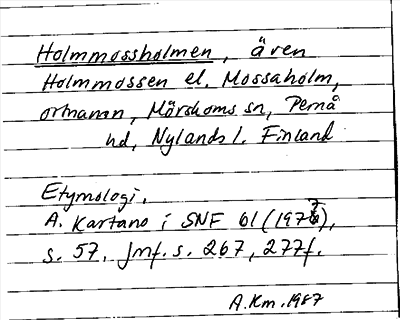 Holmmossholmen, även
Holmmossen el. Mossaholm,
ortnamn, Mörskoms sn, Pernå
hd, Nylands l. Finland
Etymologi.
A. Kartano i SNF 61 (1973),
s. 57. Jmf. s. 267, 277f.
A.Km.1987